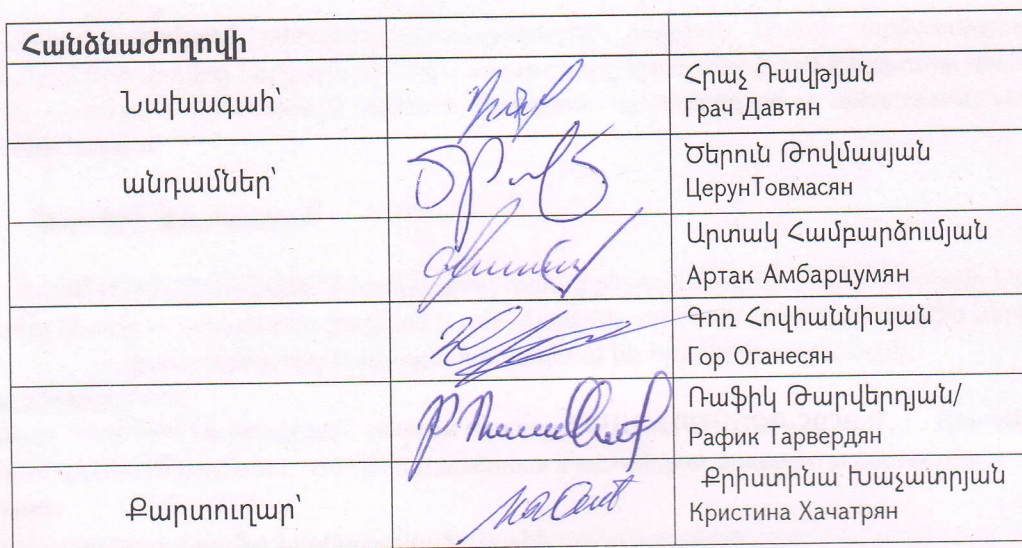 Հանձնաժողովի
Նախագահ՝
Հրաչ Դավթյան
Грач Давтян
անդամներ՝
Ծերուն Թովմասյան
ЦерунТовмасян
Արտակ Համբարձումյան
Артак Амбарцумян
Գոռ Հովհաննիսյան
Гор Оганесян
Ռաֆիկ Թարվերդյան/
Рафик Тарвердян
Քարտուղար՝
Քրիստինա Խաչատրյան
Кристина Хачатрян